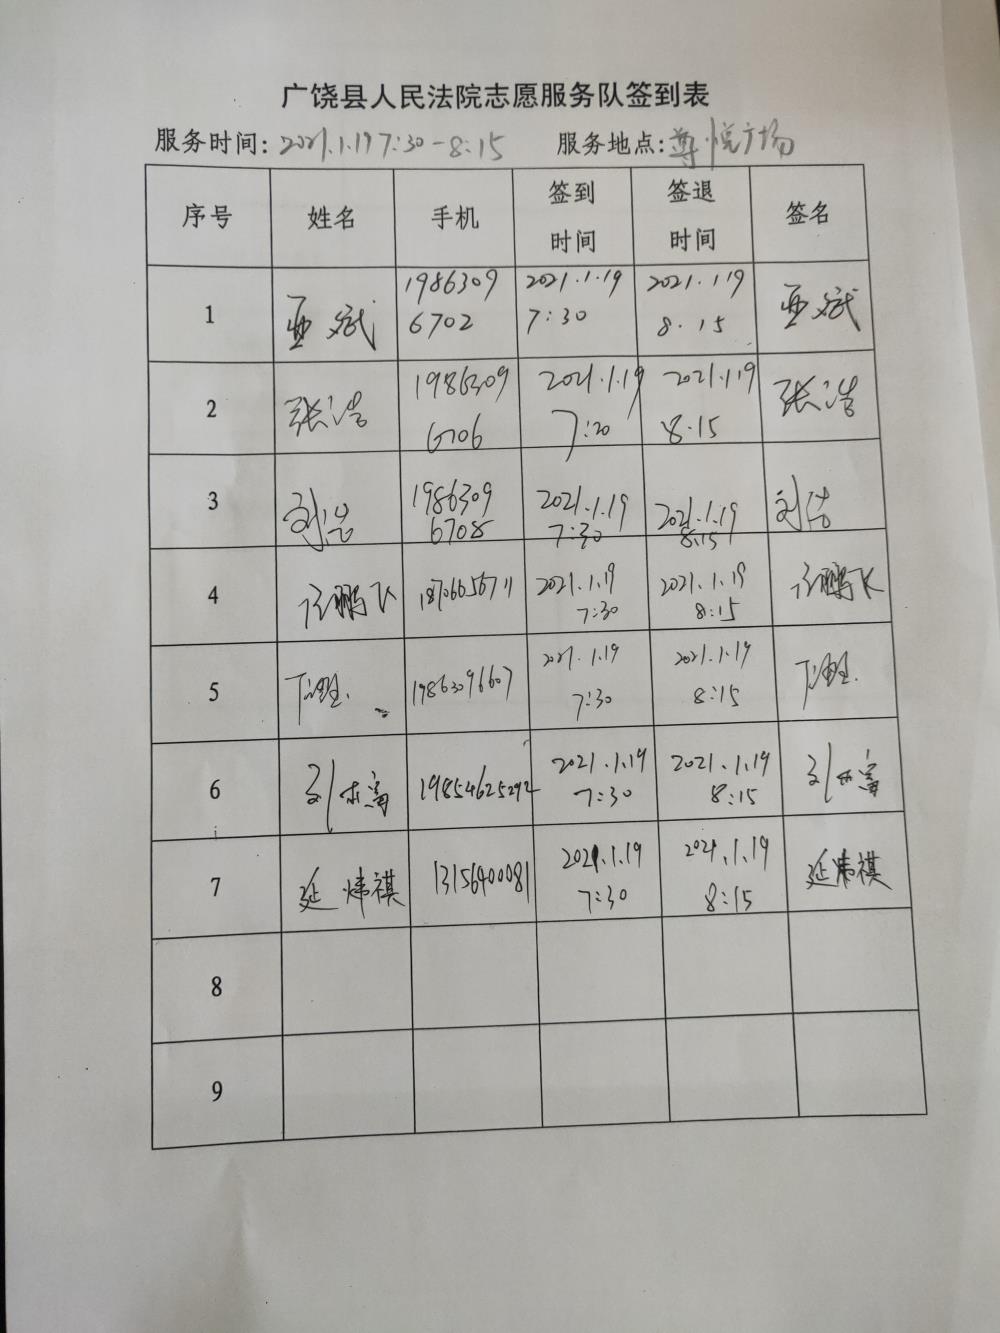 广饶县人民法院志愿服务队签到表
服务时间: 2021.1.19 7:30-8:15 服务地点: 尊悦广场
序号 姓名 手机 签到时间 签退时间 签名
1 亚斌 19863096702 2021.1.19 7:30 2021.1.19 8.15 亚斌
2 张浩 19863096706 2021.1.19 7:20 2021.1.19 8.15 张浩
3 刘浩 19863096708 2021.1.19 7:30 2021.1.19 8:15 刘浩
4 鹏飞 18706656711 2021.1.19 7:30 2021.1.19 8:15 鹏飞
5 19863096607 2021.1.19 7:30 2021.1.19 8:15
6 刘 19854625292 2021.1.19 7:30 2021.1.19 8:15 刘
7 延炜祺 1315640081 2021.1.19 7:30 2021.1.19 8:15 延炜祺
8
9